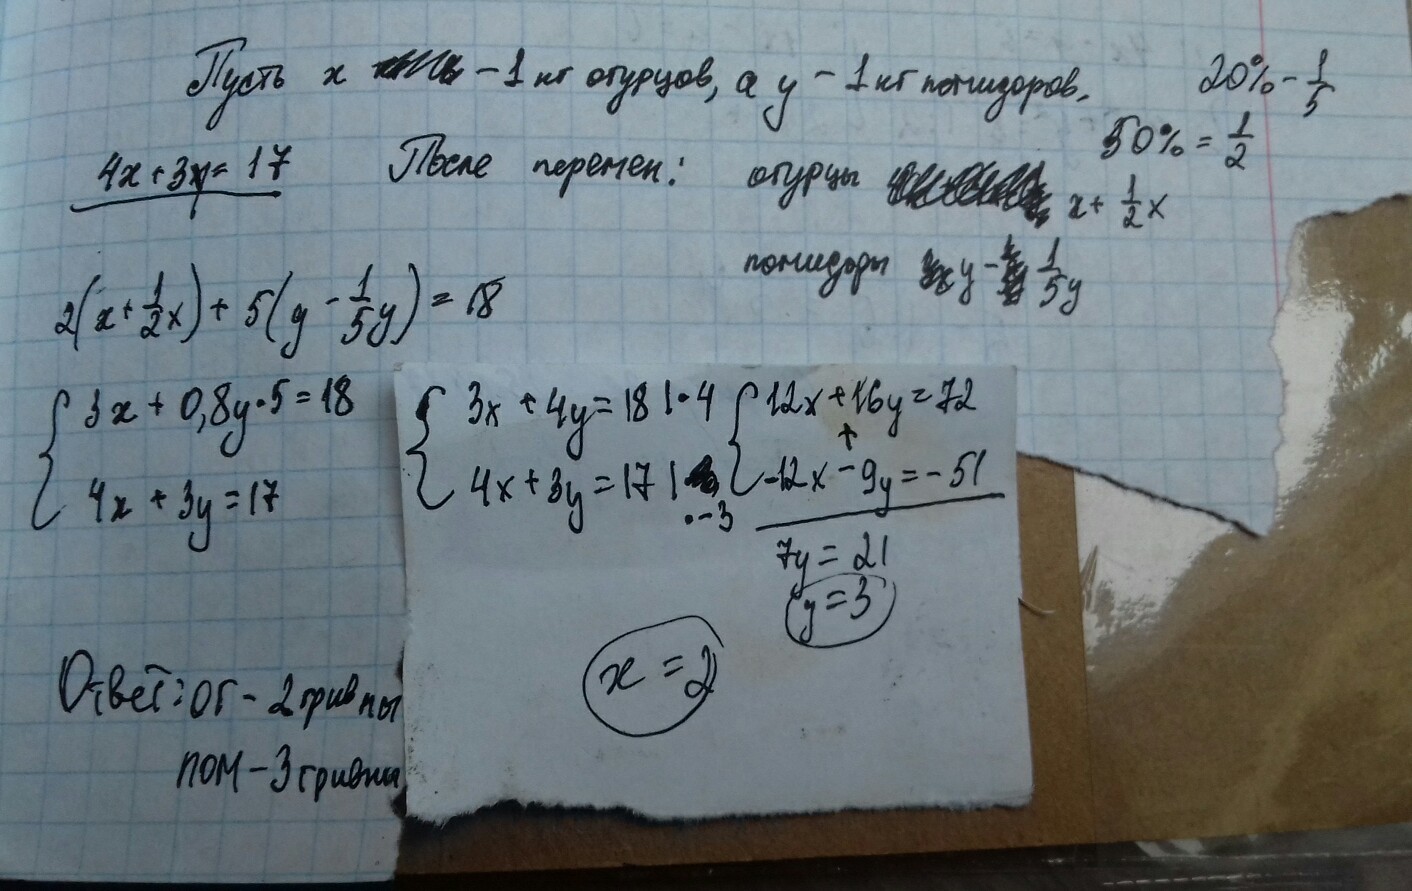 Пусть x - 1 кг огурцов, а y - 1 кг помидоров. 20% - 1/5
50% = 1/2
4x + 3y = 17 После перемен: огурцы x + 1/2x
помидоры y - 1/5y
2(x + 1/2x) + 5(y - 1/5y) = 18
{ 3x + 0,8y·5 = 18
4x + 3y = 17
{ 3x + 4y = 18 |·4
4x + 3y = 17 | ·-3
{ 12x + 16y = 72
+
-12x - 9y = -51
7y = 21
y = 3
x = 2
Ответ: ОГ - 2 гривны
ПОМ - 3 гривны